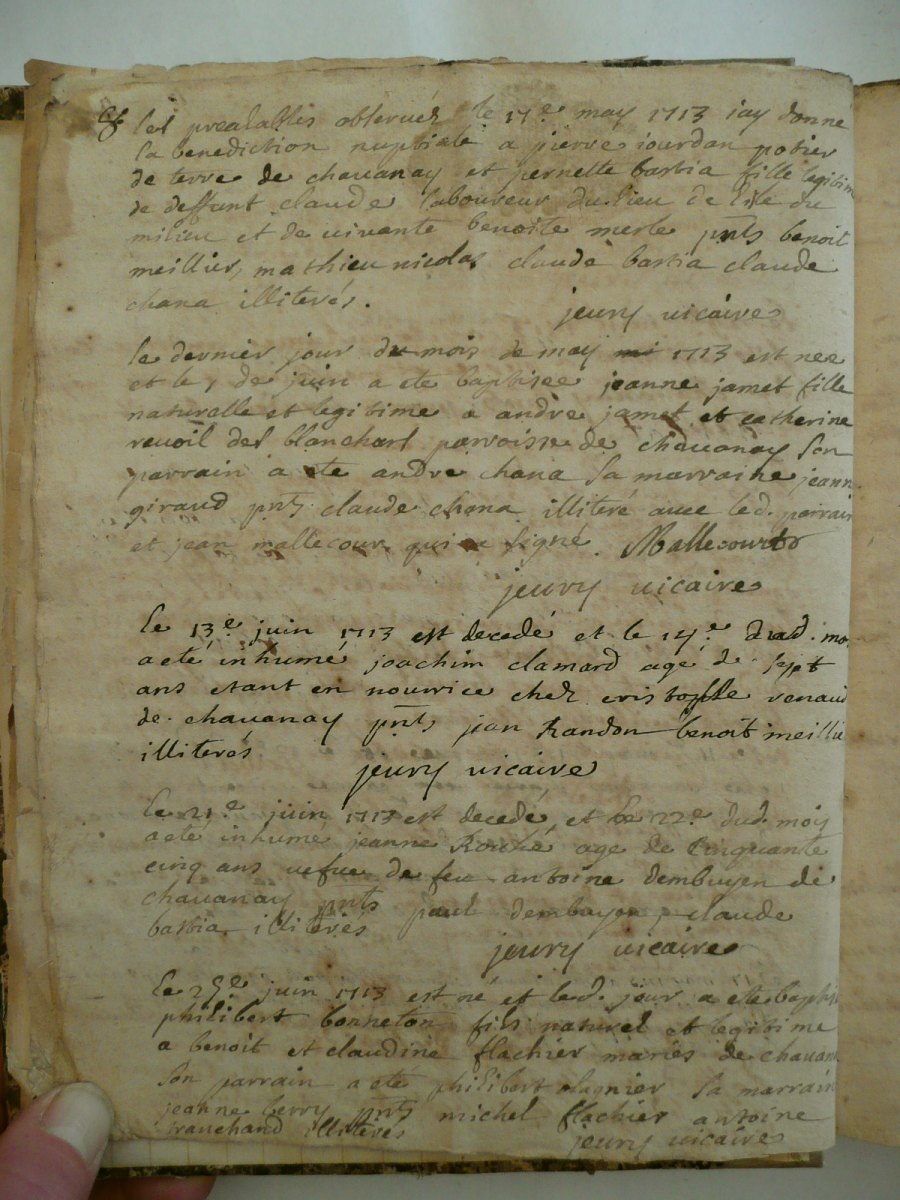 les prealables obseruez le 17e may 1713 iay donne
la benediction nuptiale a pierre iourdan potier
de terre de chauanay et pernette barbia fille legitime
de deffunt claude laboureur du lieu de lile du
milieu et de viuante benoite merle pnts benoit
meillier, mathieu nicolas claude barbia claude
chana illiterés.
jeury vicaire
le dernier jour du mois de may 1713 est nee
et le 1 de juin a ete baptisee jeanne jamet fille
naturelle et legitime a andre jamet et catherine
reuoil des blanchart parroisse de chauanay son
parrain a ete andre chana sa marraine jeann
giraud pnts claude chana illiteré auec led. parrain
et jean mallecour qui a signé. Mallecour
jeury vicaire
le 13e juin 1713 est decedé et le 14e dud. mo
a eté inhumé joachim clamard agé de sept
ans etant en nourrice chez cristofle renaud
de chauanay pnts jean Randon benoit meillie
illiterés
jeury vicaire
le 21e juin 1713 est decedé et le 22e dud. moy
a eté inhume jeanne Roiché age de Cinquante
cinq ans uefue de feu antoine dembuyen de
chauanay pnts paul dembuyen claude
barbia illiterés
jeury vicaire
le 25e juin 1713 est né et led. jour a ete baptis
philibert bonneton fils naturel et legitime
a benoit et claudine flachier mariés de chauan
son parrain a eté philibert olagnier sa marrain
jeanne berry pnts michel flachier antoine
tranchand illiterés
jeury vicaire